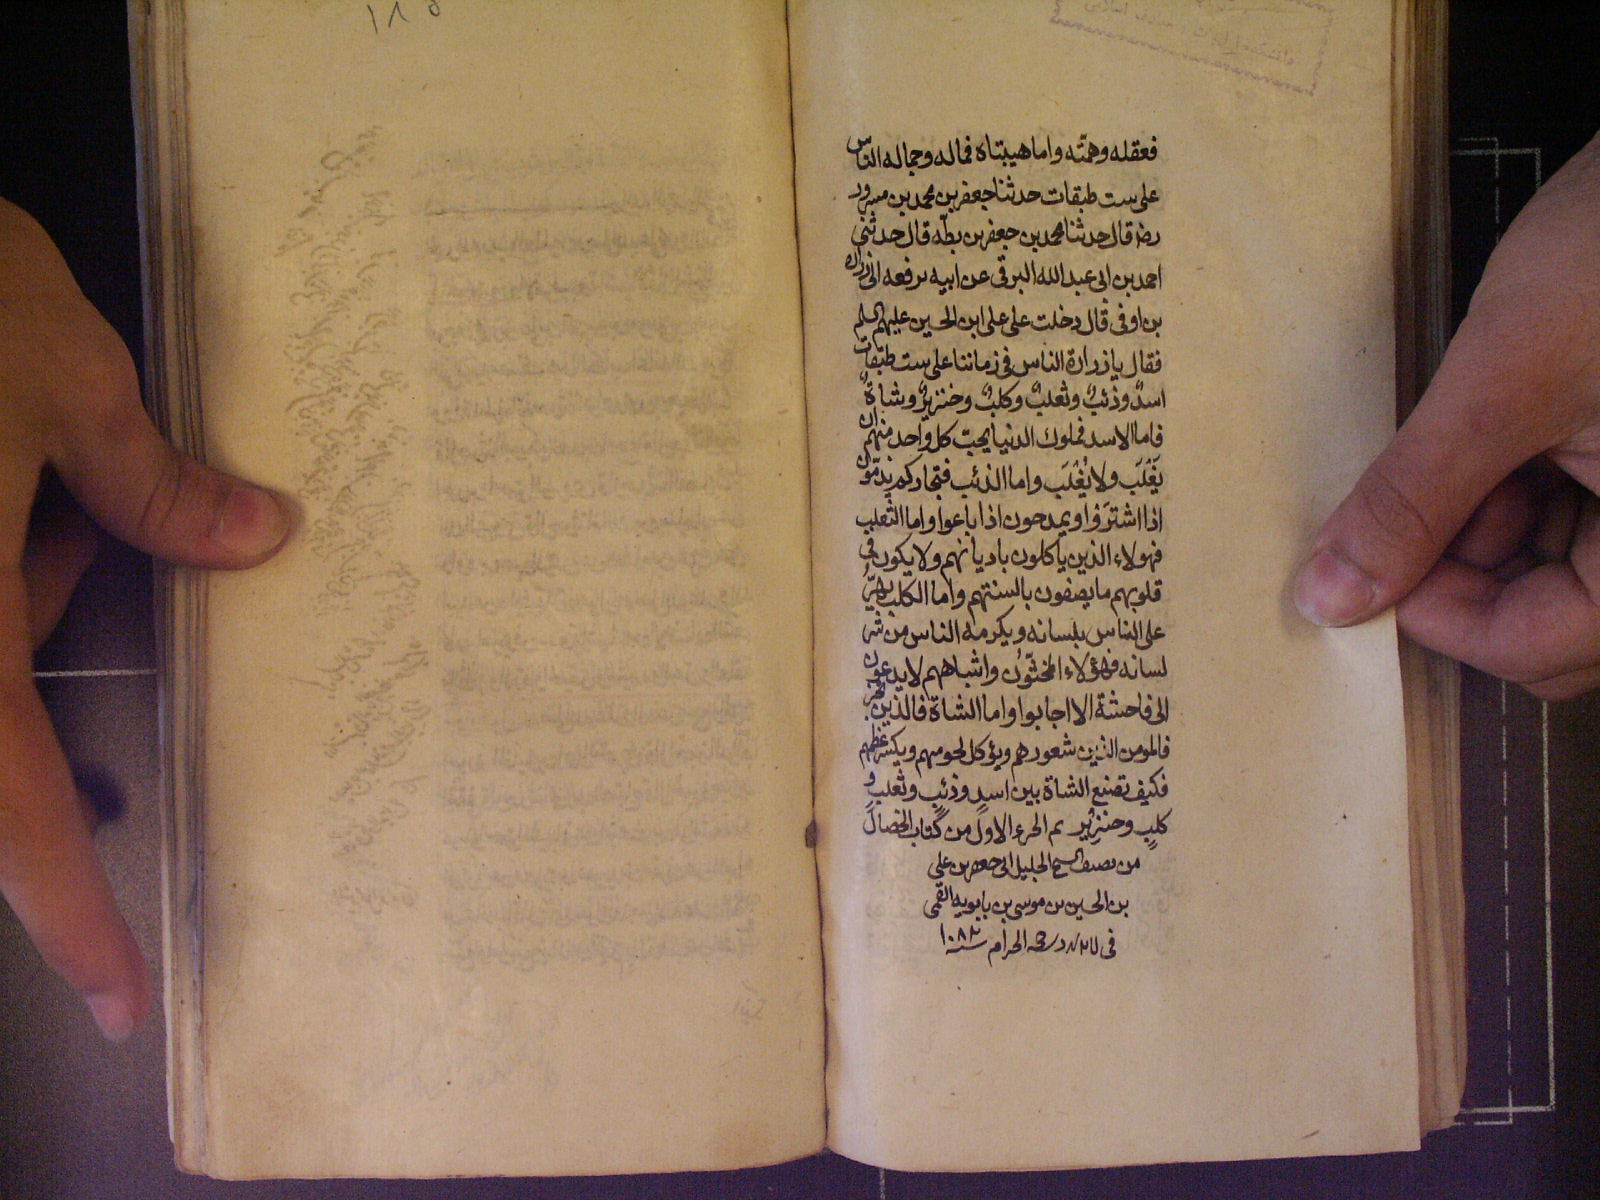 فعقله وهمته واما هيبتاه فماله وجماله الناس
على ست طبقات حدثنا جعفر بن محمد بن مسرور
رضا قال حدثنا محمد بن جعفر بن بطه قال حدثني
احمد بن ابى عبد الله البرقى عن ابيه يرفعه الى زراره
بن اوفى قال دخلت على على ابن الحسين عليهم السلم
فقال يا زرارة الناس فى زماننا على ست طبقات
اسدٌ وذئبٌ وثعلبٌ وكلبٌ وخنزيرٌ وشاةٌ
فاما الاسد فملوك الدنيا يحب كل واحد منهم ان
يَغْلَب ولا يُغْلَبَ واما الذئب فتجاركم يذمّون
اذا اشتروا ويمدحون اذا باعوا واما الثعلب
فهولاء الذين ياكلون باديانهم ولا يكون فى
قلوبهم ما يصفون بالسنتهم واما الكلب يهرّ
على الناس بلسانه ويكرمه الناس من شر
لسانه فهؤلاء المخنثون واشباههم لا يدعون
الى فاحشة الا اجابوا واما الشاة فالذين تجز
شعورهم ويؤكل لحومهم ويكسر عظمهم
فكيف تصنع الشاة بين اسدٍ وذئبٍ وثعلبٍ و
كلبٍ وخنزيرٍ تم الجزء الاول من كتاب الخصال
من تصنيف الشيخ الجليل ابى جعفر بن على
بن الحسين بن موسى بن بابويه القمى
الحرام سنة ١٠٨٢
١٨٥